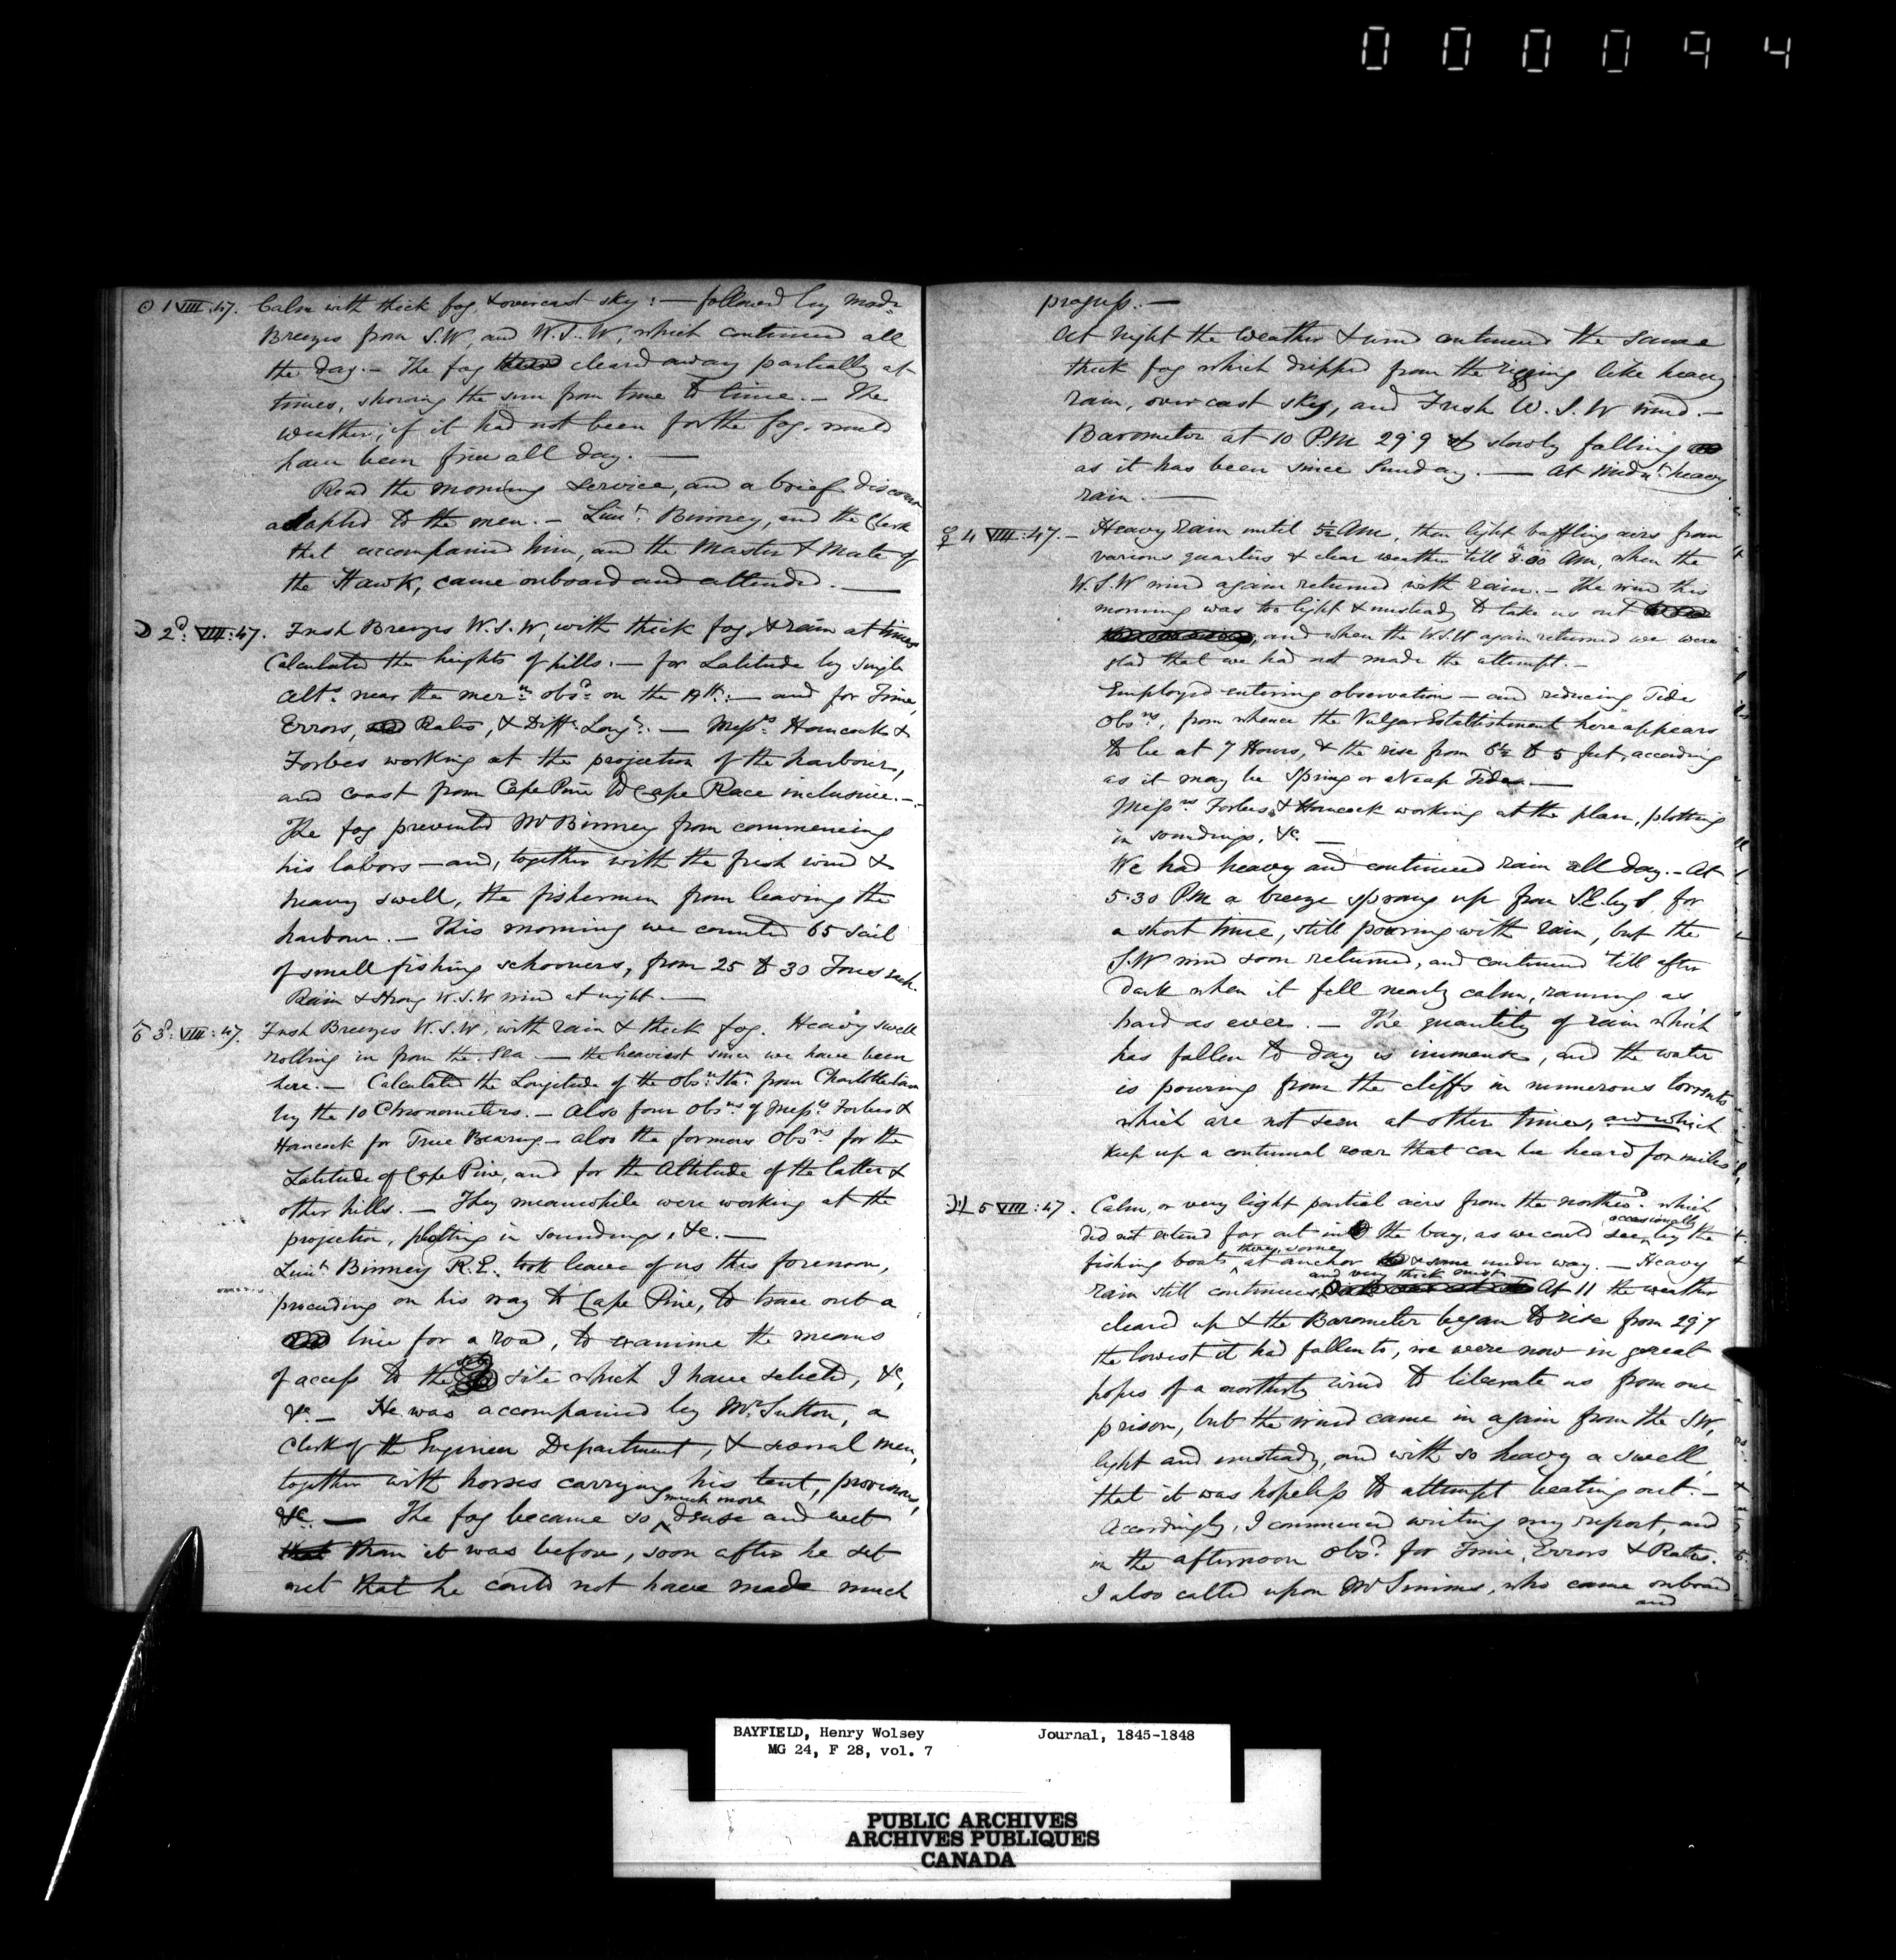 000094
☉ 1 VIII:47. Calm with thick fog & overcast sky: — followed by Modr.
Breezes from S.W, and W.S.W, which continued all
the day. — The fog cleared away partially at
times, showing the sun from time to time. — The
weather, if it had not been for the fog, would
have been fine all day. —
Read the morning service, and a brief discourse
adapted to the men. — Lieut. Binney, and the Clerk
that accompanied him, and the Master & Mate of
the Hawk, came onboard and attended. —
☽ 2d: VIII:47. Fresh Breezes W.S.W, with thick fog, & rain at times
Calculated the heights of hills: — for Latitude by single
Alts. near the mern. obsd. on the 19th: — and for Time,
Errors, Rates, & Diffce. Longe. — Messrs. Hancock &
Forbes working at the projection of the harbours,
and coast from Cape Pine to Cape Race inclusive. —
The fog prevented Mr Binney from commencing
his labors — and, together with the fresh wind &
heavy swell, the fishermen from leaving the
harbour. — This morning we counted 65 sail
of small fishing schooners, from 25 to 30 Tons each.
Rain & strong W.S.W wind at night. —
♂ 3d: VIII:47. Fresh Breezes W.S.W, with rain & thick fog. Heavy swell
rolling in from the Sea — the heaviest since we have been
here. — Calculated the Longitude of the Obsn. Stn. from Charlottetown
by the 10 Chronometers. — Also four Obsns. of Messrs. Forbes &
Hancock for True Bearing — also the formers Obsns. for the
Latitude of Cape Pine, and for the Altitude of the latter &
other hills. — They meanwhile were working at the
projection, plotting in soundings, &c. —
Lieut. Binney R.E. took leave of us this forenoon,
proceeding on his way to Cape Pine, to trace out a
line for a road, to examine the means
of access to the site which I have selected, &c,
&c. — He was accompanied by Mr. Sutton, a
Clerk of the Engineer Department, & several men,
together with horses carrying his tent, provisions,
&c. — The fog became so much more dense and wet
that than it was before, soon after he set
out that he could not have made much
progress. —
At night the weather & wind continued the same
thick fog which dripped from the rigging like heavy
rain, overcast sky, and Fresh W.S.W wind. —
Barometer at 10 P.M 29.9 & slowly falling
as it has been since Sunday. — At Midnt. heavy
rain. —
☿ 4 VIII:47. — Heavy rain until 5½ AM, then light baffling airs from
various quarters & clear weather till 8.30 AM, when the
W.S.W wind again returned with rain. — The wind this
morning was too light & unsteady to take us out
, and when the W.S.W again returned we were
glad that we had not made the attempt. —
Employed entering observation — and reducing Tide
Obsns., from whence the Vulgar Establishment here appears
to be at 7 Hours, & the rise from 6½ to 5 feet, according
as it may be Spring or Neap Tides. —
Messrs Forbes & Hancock working at the plan, plotting
in soundings, &c. —
We had heavy and continued rain all day. — At
5.30 PM a breeze sprang up from S.E. by S. for
a short time, still pouring with rain, but the
S.W wind soon returned, and continued till after
dark when it fell nearly calm, raining as
hard as ever. — The quantity of rain which
has fallen to day is immense, and the water
is pouring from the cliffs in numerous torrents
which are not seen at other times, and which
keep up a continual roar that can be heard for miles.
♃ 5 VIII:47. Calm, or very light partial airs from the northwd. which
did not extend far out into the bay, as we could see, occasionally by the
fishing boats they, some, at anchor & some under way. — Heavy
rain still continues, and very thick mist At 11 the weather
cleared up & the Barometer began to rise from 29.7
the lowest it had fallen to, we were now in great
hopes of a northerly wind to liberate us from our
prison, but the wind came in again from the SW,
light and unsteady, and with so heavy a swell
that it was hopeless to attempt beating out. —
Accordingly, I commenced writing my report, and
in the afternoon Obsd. for Time, Errors & Rates.
I also called upon Mr Simms, who came onboard
and
BAYFIELD, Henry Wolsey Journal, 1845-1848
MG 24, F 28, vol. 7
PUBLIC ARCHIVES
ARCHIVES PUBLIQUES
CANADA